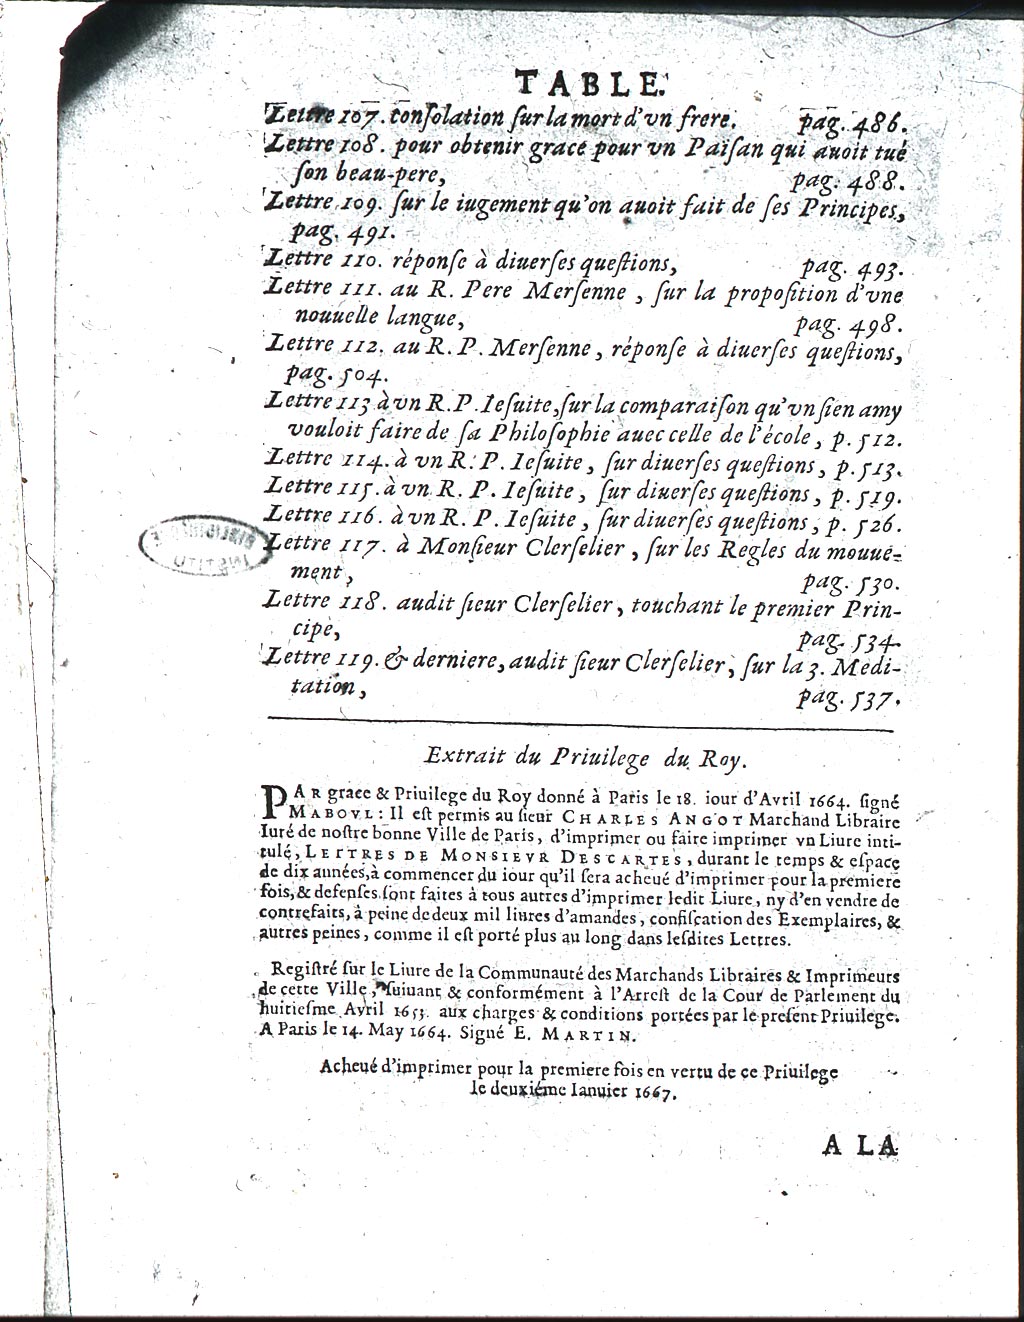 TABLE.
Lettre 107. consolation ſur la mort d'vn frere. pag. 486.
Lettre 108. pour obtenir grace pour vn Païſan qui auoit tué
ſon beau-pere, pag. 488.
Lettre 109. ſur le iugement qu'on auoit fait de ſes Principes,
pag. 491.
Lettre 110. réponſe à diuerſes queſtions, pag. 493.
Lettre 111. au R. Pere Merſenne, ſur la propoſition d'vne
nouuelle langue, pag. 498.
Lettre 112. au R. P. Merſenne, réponſe à diuerſes queſtions,
pag. 504.
Lettre 113 à vn R. P. Ieſuite, ſur la comparaiſon qu'vn ſien amy
vouloit faire de ſa Philoſophie auec celle de l'école, p. 512.
Lettre 114. à vn R. P. Ieſuite, ſur diuerſes queſtions, p. 513.
Lettre 115. à vn R. P. Ieſuite, ſur diuerſes queſtions, p. 519.
Lettre 116. à vn R. P. Ieſuite, ſur diuerſes queſtions, p. 526.
Lettre 117. à Monſieur Clerſelier, ſur les Regles du mouue-
ment, pag. 530.
Lettre 118. audit ſieur Clerſelier, touchant le premier Prin-
cipe, pag. 534.
Lettre 119. & derniere, audit ſieur Clerſelier, ſur la 3. Medi-
tation, pag. 537.
Extrait du Priuilege du Roy.
PAR grace & Priuilege du Roy donné à Paris le 18. iour d'Avril 1664. ſigné
MABOVL: Il eſt permis au ſieur CHARLES ANGOT Marchand Libraire
Iuré de noſtre bonne Ville de Paris, d'imprimer ou faire imprimer vn Liure inti-
tulé, LETTRES DE MONSIEVR DESCARTES, durant le temps & eſpace
de dix années, à commencer du iour qu'il ſera acheué d'imprimer pour la premiere
fois, & defenſes ſont faites à tous autres d'imprimer ledit Liure, ny d'en vendre de
contrefaits, à peine de deux mil liures d'amandes, confiſcation des Exemplaires, &
autres peines, comme il eſt porté plus au long dans leſdites Lettres.
Regiſtré ſur le Liure de la Communauté des Marchands Libraires & Imprimeurs
de cette Ville, ſuiuant & conformément à l'Arreſt de la Cour de Parlement du
huitieſme Avril 1653. aux charges & conditions portées par le preſent Priuilege.
A Paris le 14. May 1664. Signé E. MARTIN.
Acheué d'imprimer pour la premiere fois en vertu de ce Priuilege
le deuxiéme Ianuier 1667.
A LA